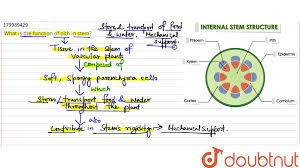 179989429
What is the function of pith in stem?
Store & transport of food
& water, Mechanical
support
Tissue in the stem of
vascular plants
composed of
Soft, Spongy parenchyma cells
which
Store/transport food & water
throughout the plant.
also
Contribute in Stem's rigidity → Mechanical support.
INTERNAL STEM STRUCTURE
Phloem
Pith
Epidermis
Xylem
Cortex
Cambium
doubtnut